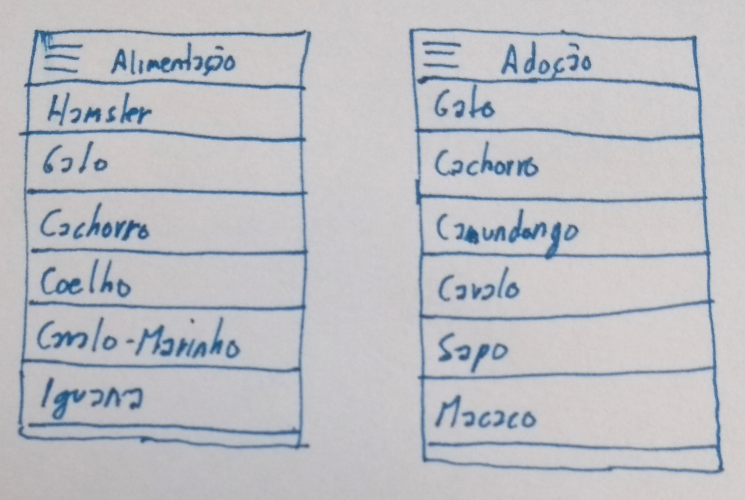 Alimentação
Hamster
Gato
Cachorro
Coelho
Cavalo-Marinho
Iguana
Adoção
Gato
Cachorro
Camundongo
Cavalo
Sapo
Macaco